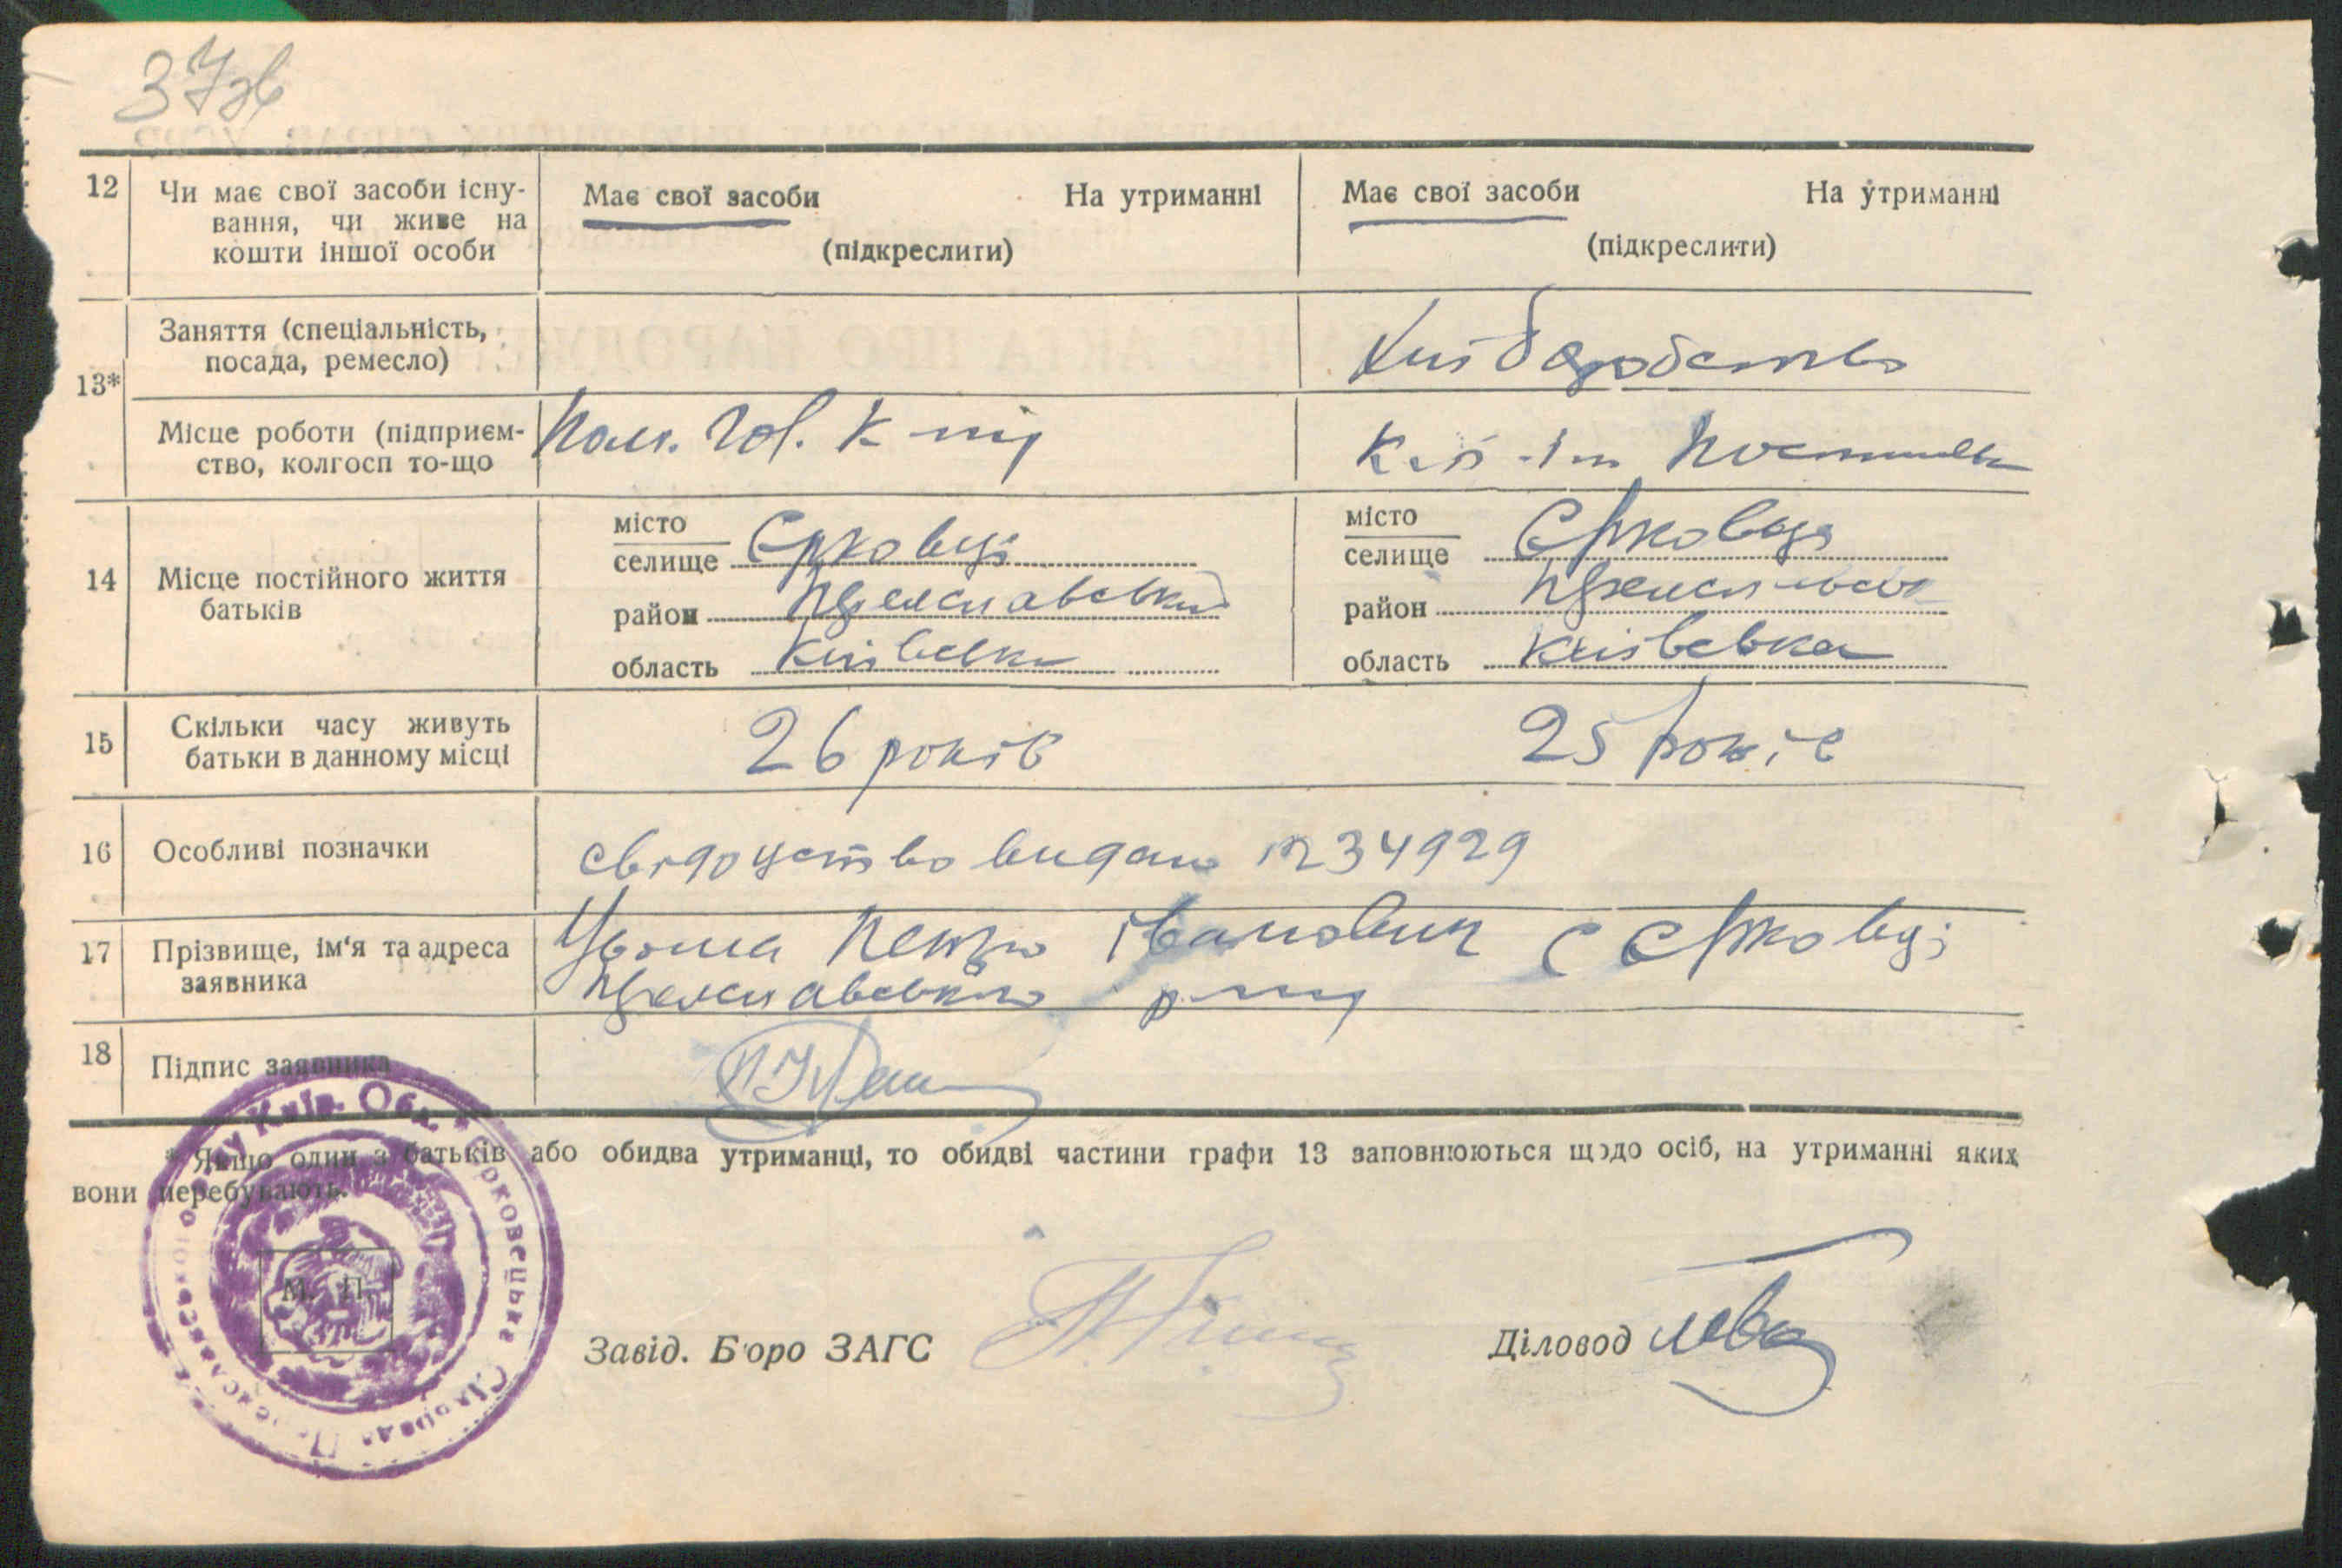 37
12 Чи має свої засоби існу-
вання, чи живе на
кошти іншої особи
Має свої засоби На утриманні
(підкреслити)
Має свої засоби На утриманні
(підкреслити)
13*
Заняття (спеціальність,
посада, ремесло)
Хліборобство
Місце роботи (підприєм-
ство, колгосп то-що
14 Місце постійного життя
батьків
місто
селище Єрковці
район Переяславський
область Київська
місто
селище Єрковці
район
область Київська
15 Скільки часу живуть
батьки в данному місці
26 років
25 років
16 Особливі позначки
свідоцтво видано №34929
17 Прізвище, ім'я та адреса
заявника
Петро Іванович с Єрковці
Переяславського р-ну
18 Підпис заявника
* Якщо один з батьків або обидва утриманці, то обидві частини графи 13 заповнюються щодо осіб, на утриманні яких
вони перебувають.
М. П.
Єрковецька Сільрада
Київ. Обл.
Завід. Бюро ЗАГС
Діловод